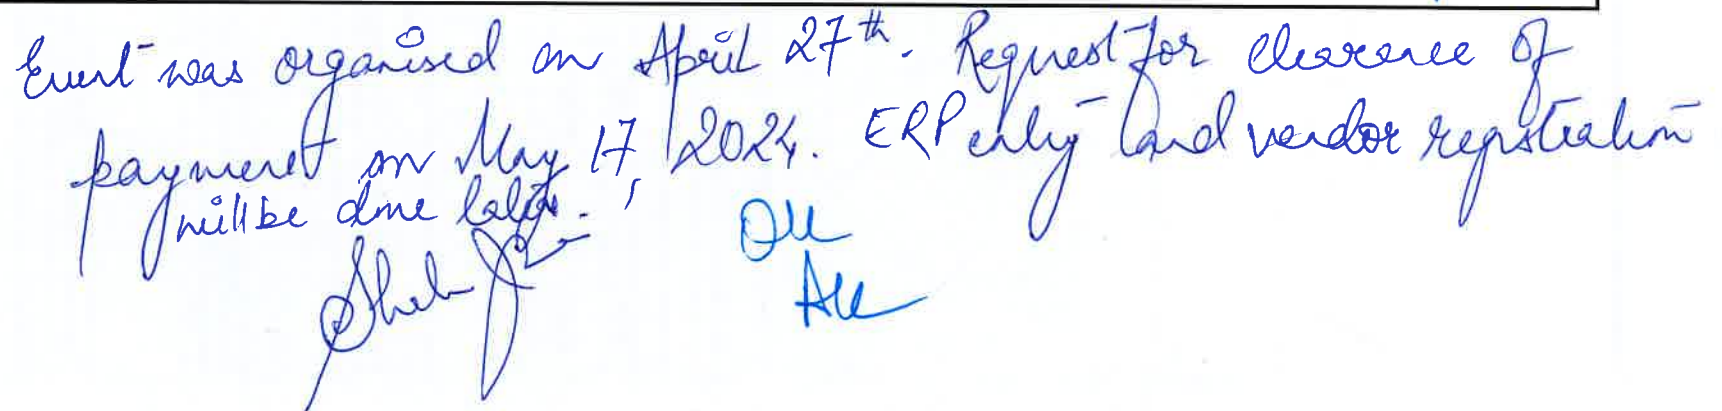 Event was organised on April 27th. Request for clearence of
payment on May 17, 2024. ERP entry and vendor registration
will be done later.
Ok